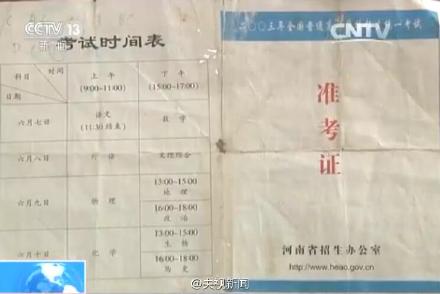 CCTV 13
新闻
考试时间表
时间
科目
日期
上午
(9:00~11:00)
下午
(15:00~17:00)
六月七日
语文
(11:30结束)
数学
六月八日
外语
文理综合
六月九日
物理
13:00~15:00
地理
16:00~18:00
政治
六月十日
化学
13:00~15:00
生物
16:00~18:00
历史
二〇〇三年全国普通高
一考试
CNTV
准考证
河南省招生办公室
http://www.heao.gov.cn
@央视新闻